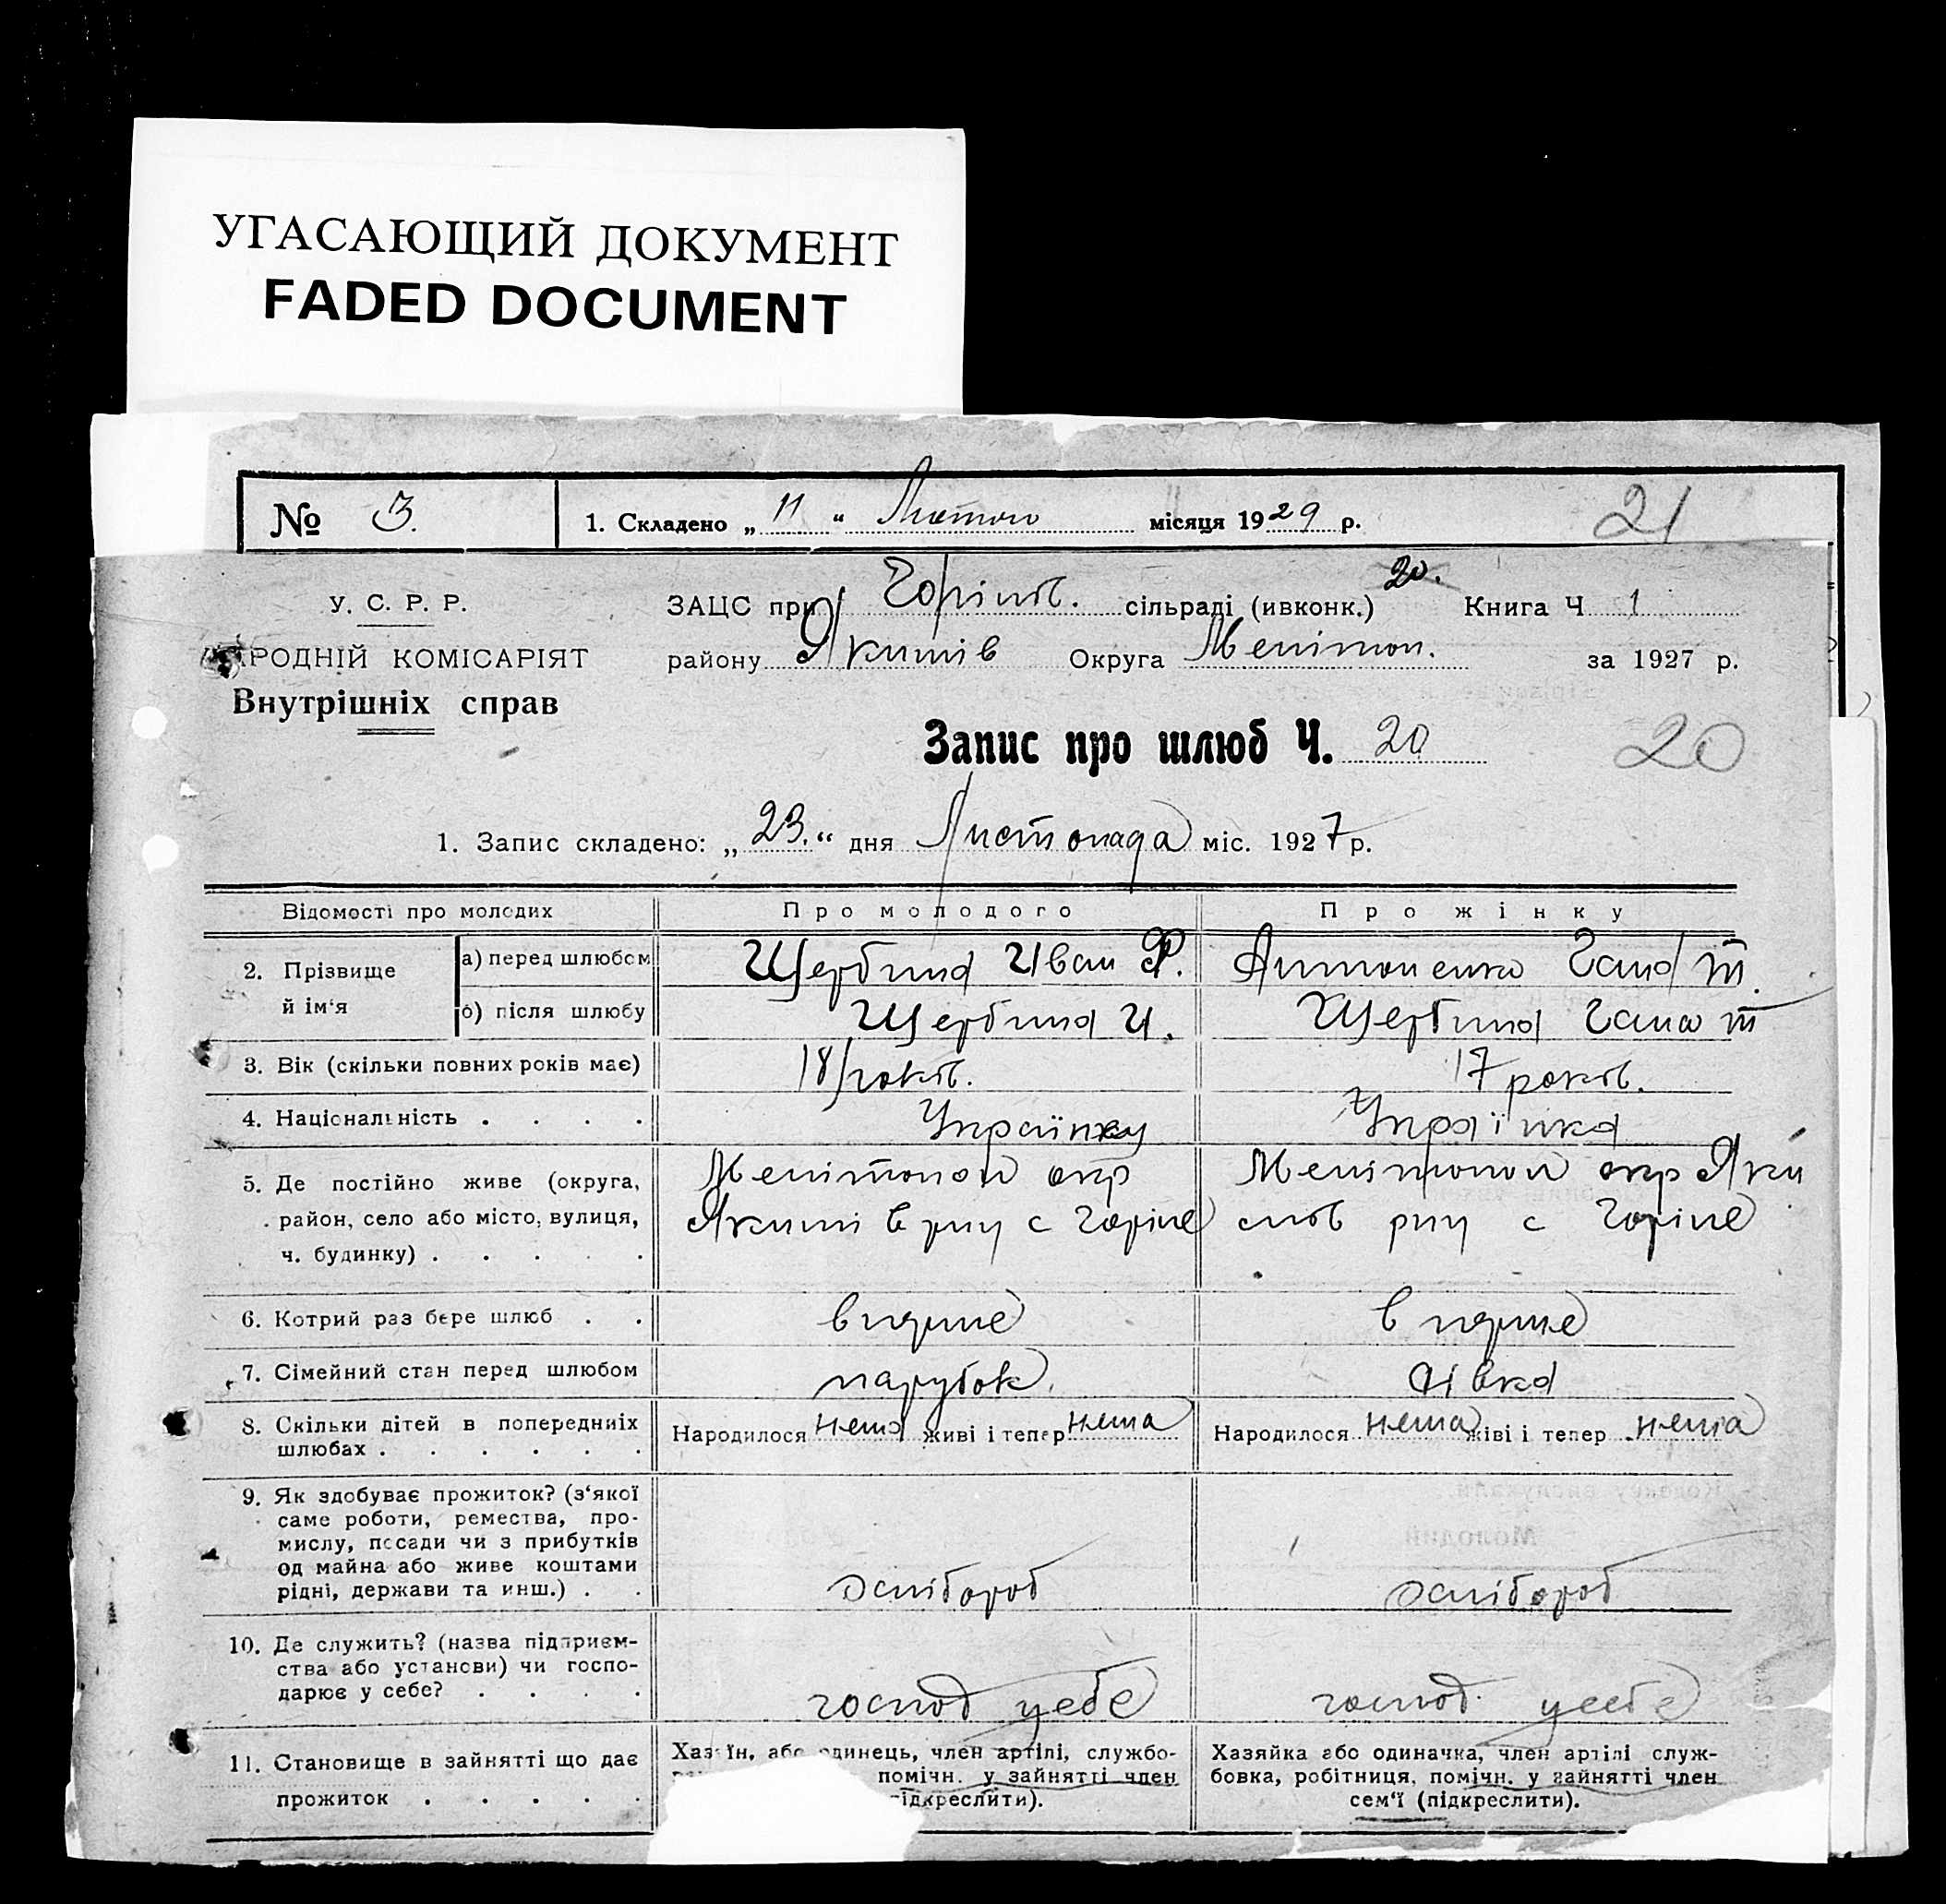 УГАСАЮЩИЙ ДОКУМЕНТ
FADED DOCUMENT
№ 3.
1. Складено „ 11 “ Листоп місяця 1929 р.
21
У. С. Р. Р.
РОДНІЙ КОМІСАРІЯТ
Внутрішніх справ
ЗАЦС при Горінів. сільраді (ивконк.) 20. Книга Ч 1
району Якимів Округа Мелітоп. за 1927 р.
Запис про шлюб Ч. 20
20
1. Запис складено: „ 23. “ дня Листопада міс. 1927 р.
Відомості про молодих Про молодого Про жінку
2. Прізвище й ім‘я
а) перед шлюбом Щербина Иван Ф. Антоненко Гана Т.
б) після шлюбу Щербина И. Щербина Гана Т
3. Вік (скільки повних років має) 18 років. 17 років.
4. Національність . . . . Українка
5. Де постійно живе (округа, район, село або місто, вулиця, ч. будинку) . . . . .
Мелітопол окр
Якимів рну с Горіне
Мелітопол окр Яки
мов рну с Горіне
6. Котрий раз бере шлюб . . вперше вперше
7. Сімейний стан перед шлюбом парубок. дівка
8. Скільки дітей в попередниіх шлюбах . . . . . .
Народилося нема живі і тепер нема
Народилося нема живі і тепер нема
9. Як здобуває прожиток? (з‘якої
саме роботи, ремества, про-
мислу, посади чи з прибутків
од майна або живе коштами
рідні, держави та инш.) . .
хлібороб хлібороб
10. Де служить? (назва підприєм-
ства або установи) чи госпо-
дарює у себе? . . . .
господ у себе господ. у себе
11. Становище в зайнятті що дає
прожиток . . . . .
Хазяїн, або одинець, член артілі, службо-
помічн. у зайнятті член
підкреслити).
Хазяйка або одиначка, член артілі служ-
бовка, робітниця, помічн. у зайнятті член
сем‘ї (підкреслити).